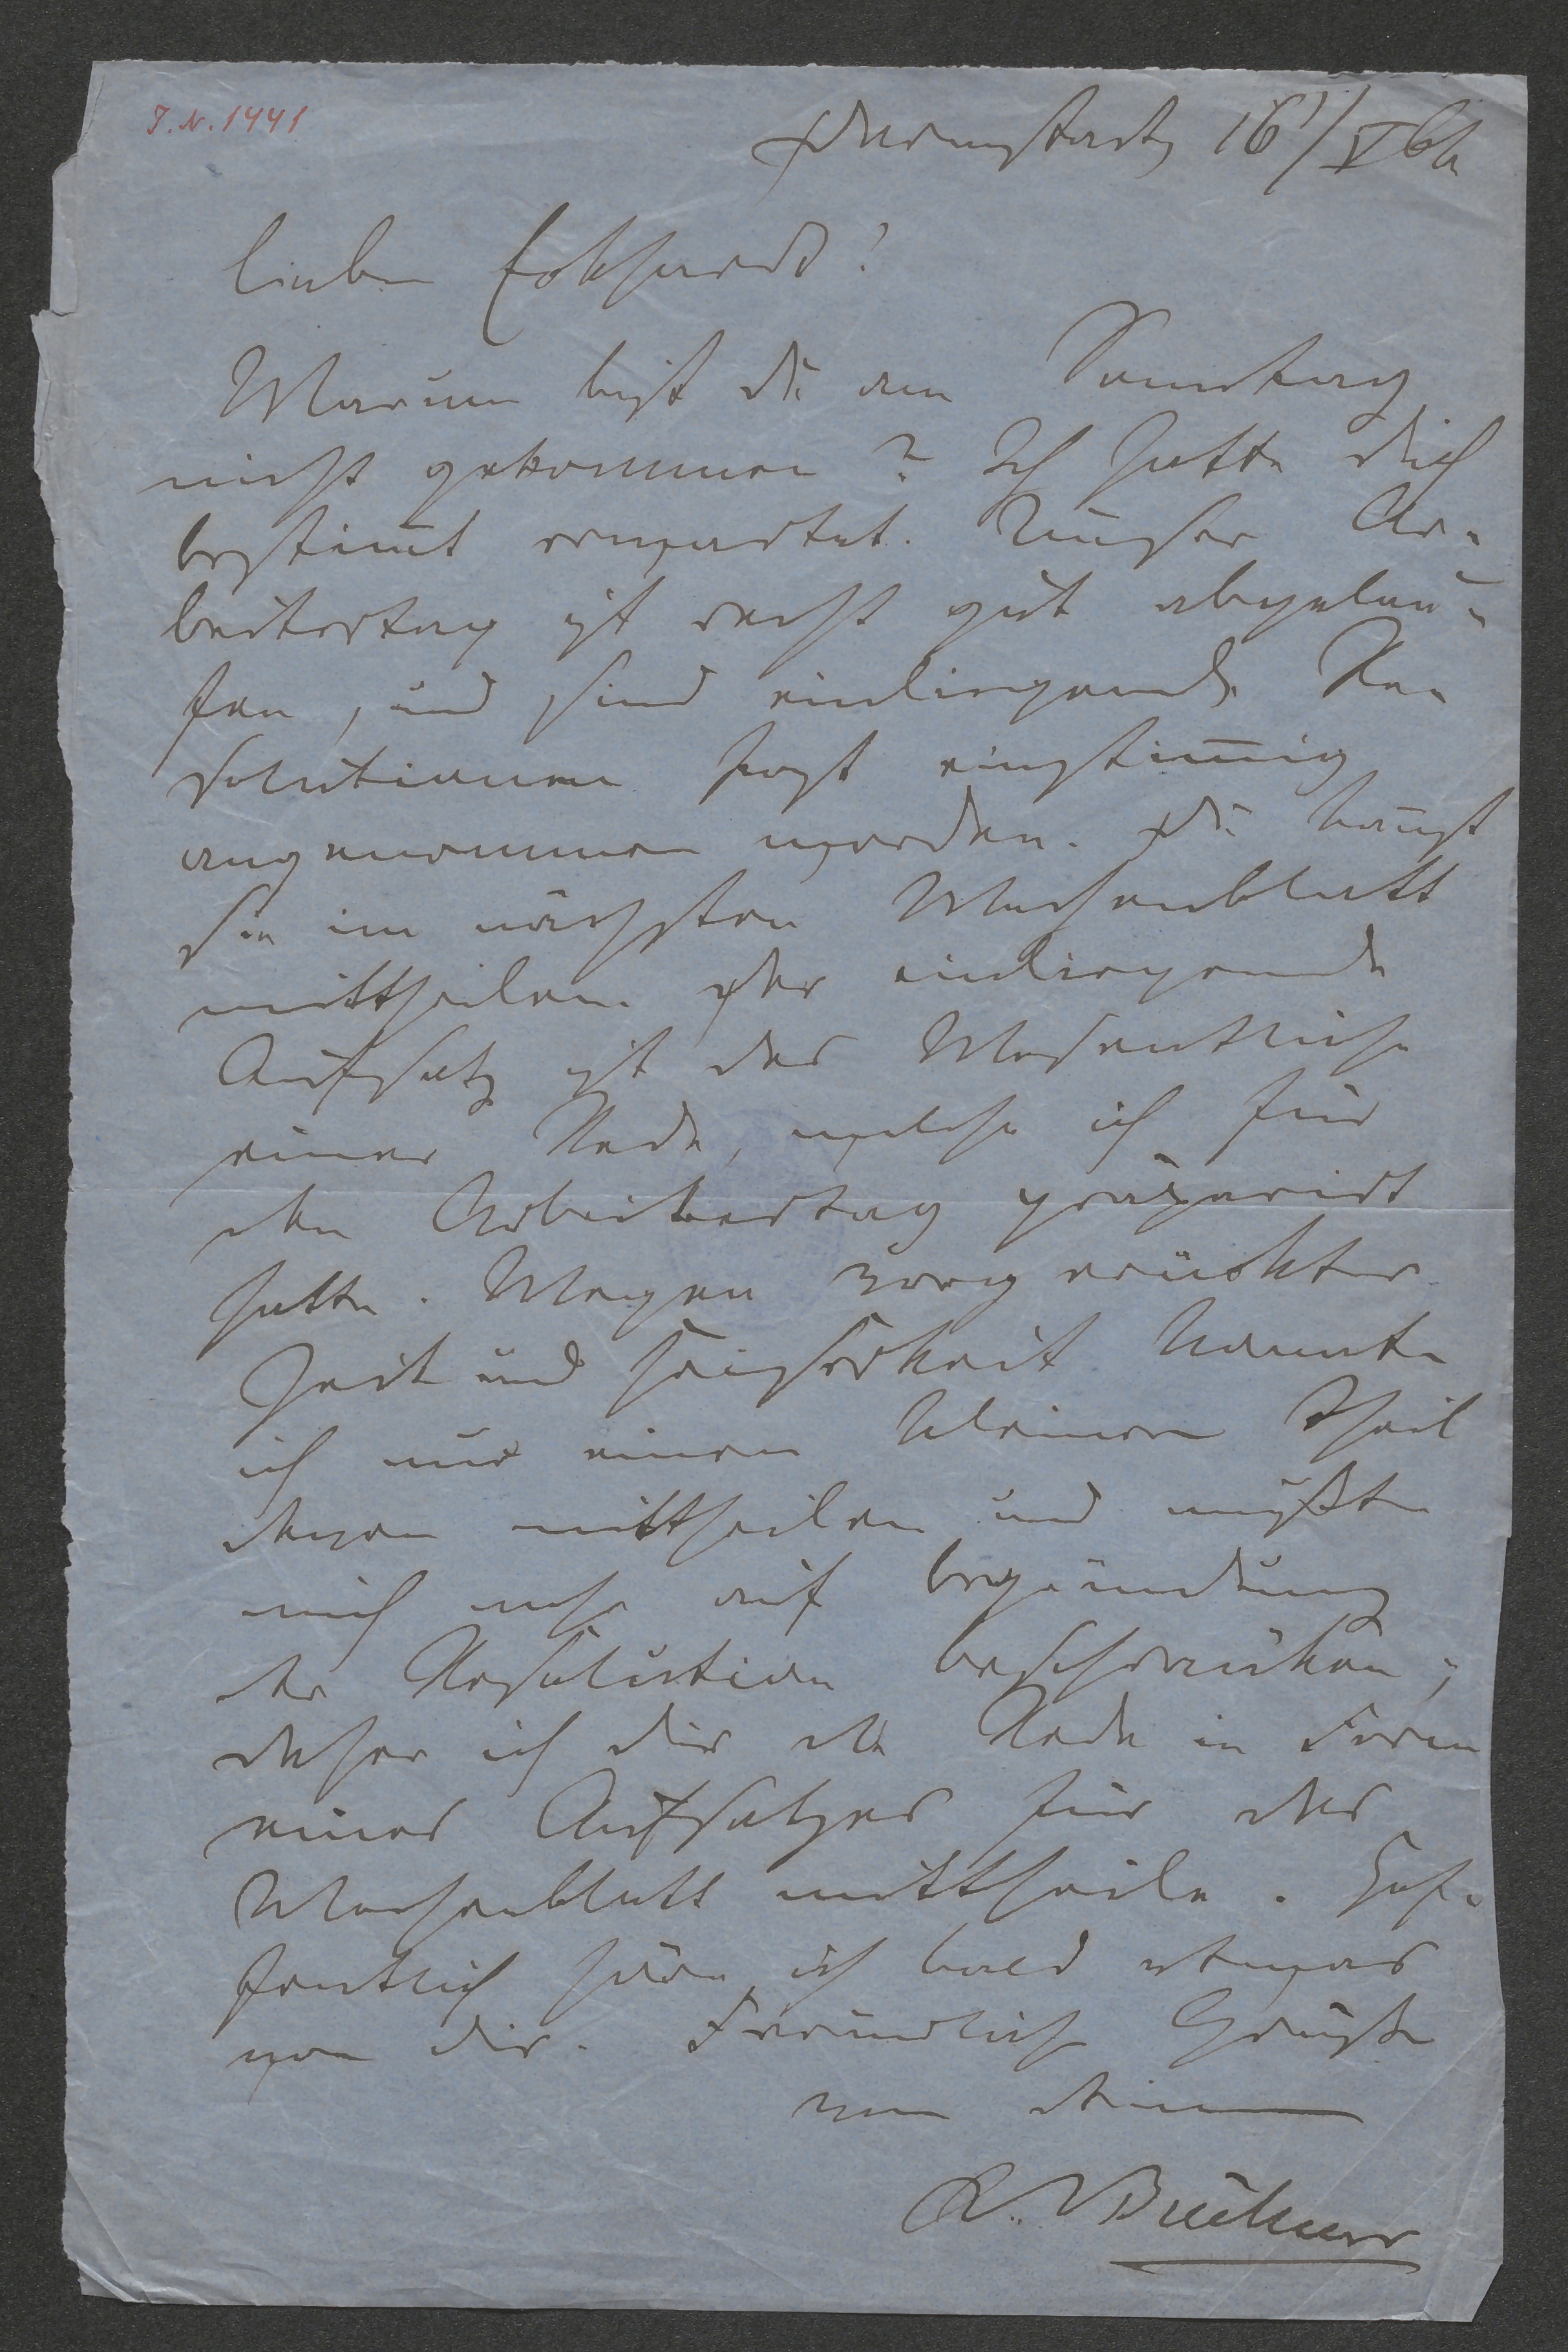 J. N. 1441
Darmstadt, 16/V 64
Lieber Eckhardt!
Warum bist du am Sonntag
nicht gekommen? Ich hatte dich
bestimt erwartet. Unser Ar-
beitertag ist recht gut abgelau-
fen, und sind einliegende Re-
solutionen fast einstimig
angenommen worden. Du kannst
sie im nächsten Wochenblatt
mittheilen. Der einliegende
Aufsatz ist das Wesentliche
einer Rede, welche ich für
den Arbeitertag präparirt
hatte. Wegen vorgerückter
Zeit und Heiserkeit konnte
ich nur einen kleinen Theil
davon mittheilen und mußte
mich mehr auf Begründung
der Resolution beschränken;
daher ich dir die Rede in Form
eines Aufsatzes für das
Wochenblatt mittheile. Hof-
fentlich höre ich bald etwas
von dir. Freundliche Grüße
von deinem
L. Büchner